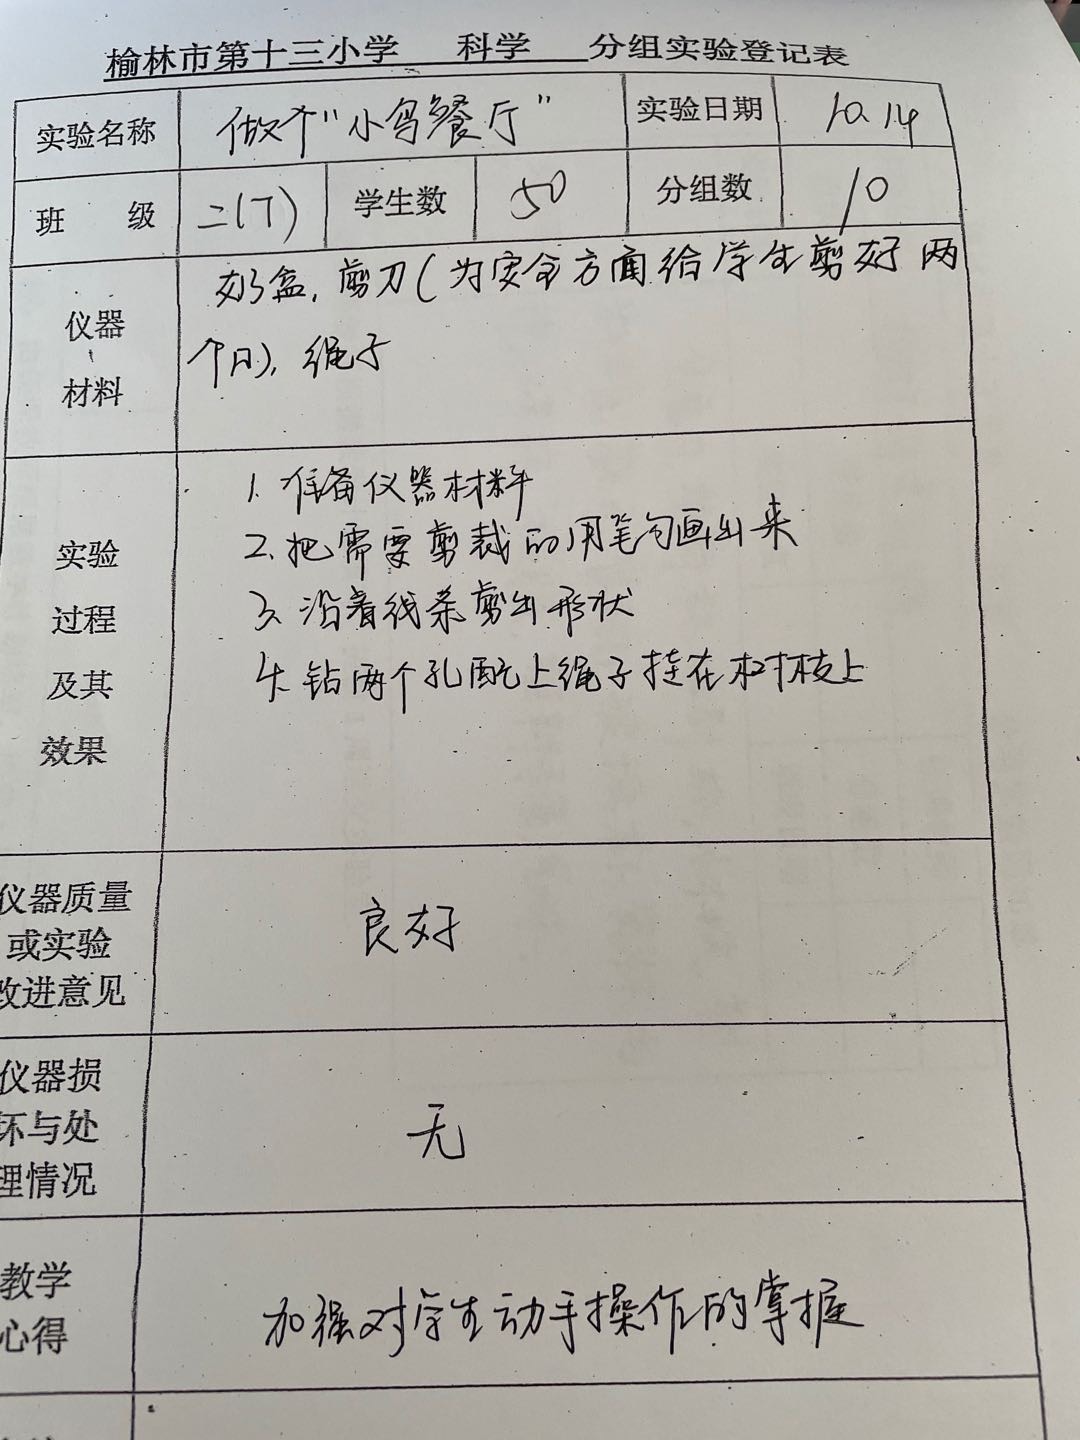 榆林市第十三小学 科学 分组实验登记表
实验名称 做个“小鸟餐厅” 实验日期 10.14
班 级 二(7) 学生数 50 分组数 10
仪器、材料
奶盒，剪刀(为安全方面给学生剪好两
个口)，绳子
实验
过程
及其
效果
1. 准备仪器材料
2. 把需要剪裁的用笔勾画出来
3. 沿着线条剪出形状
4. 钻两个孔配上绳子挂在树枝上
仪器质量
或实验
改进意见
良好
仪器损
坏与处
理情况
无
教学
心得
加强对学生动手操作的掌握